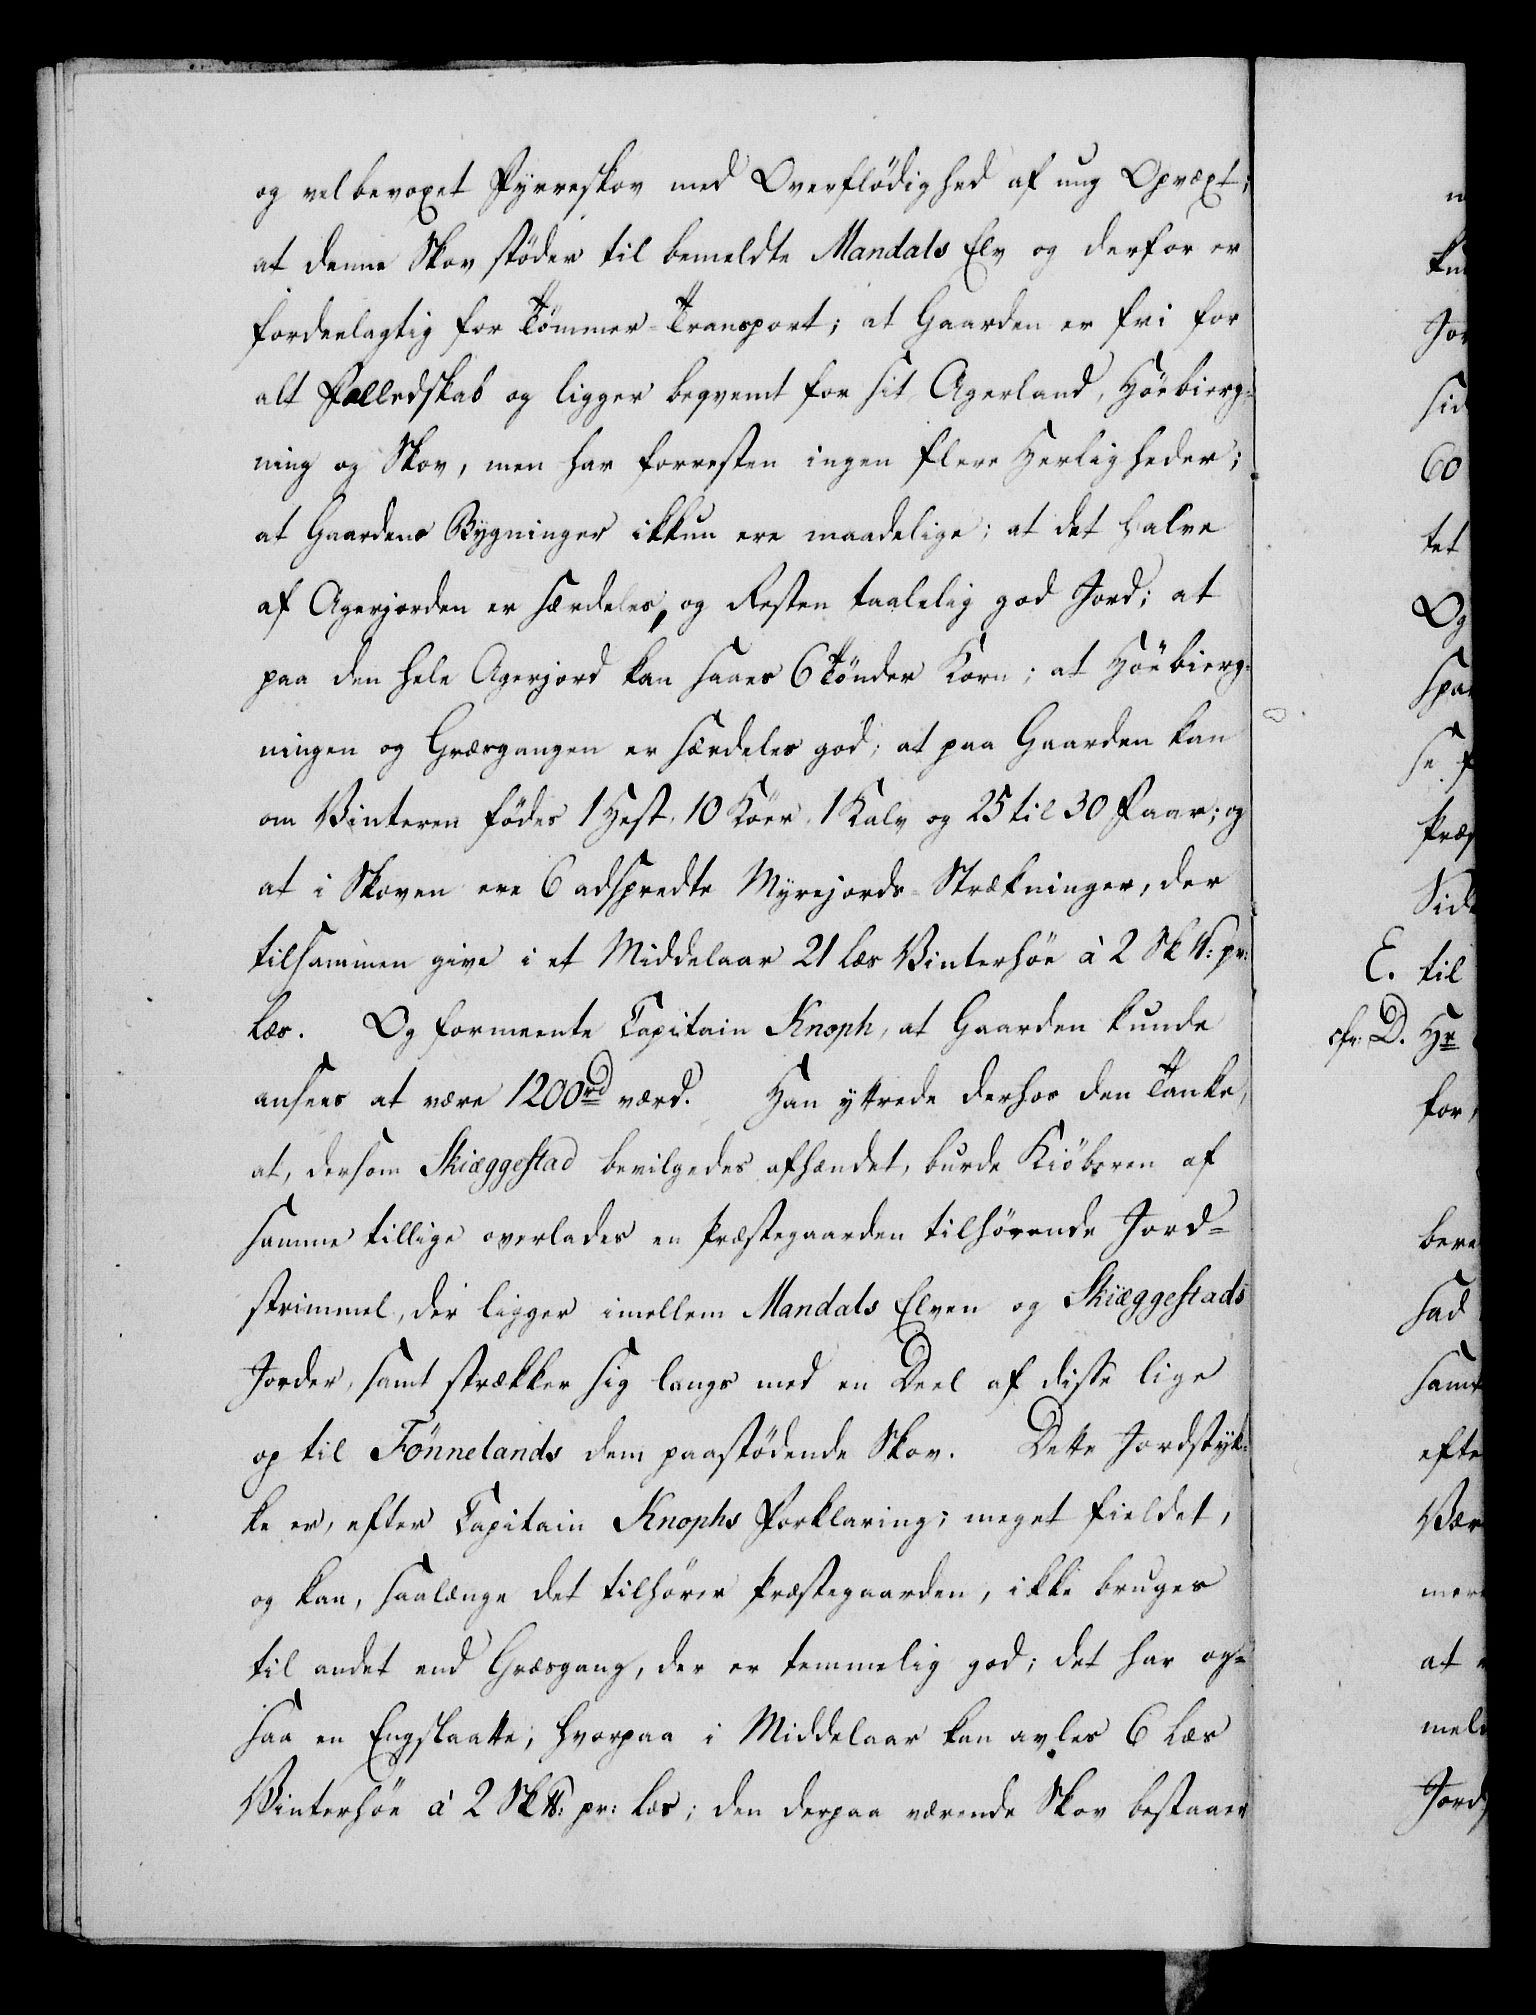 og velbevoxet Fyrreskov med Overflödighed af ung Opvæxt;
at denne Skov stöder til bemeldte Mandals Elv og derfor er
fordeelagtig for Tömmer-Transport; at Gaarden er fri for
alt Fælledskab og ligger beqvemt for sit Agerland, Höebierg-
ning og Skov, men har forresten ingen flere Herligheder;
at Gaardens Bygninger ikkun ere maadelige; at det halve
af Agerjorden er særdeles, og Resten taalelig god Jord; at
paa den hele Agerjord kan saaes 6 Tönder Korn; at Höebierg-
ningen og Græsgangen er særdeles god; at paa Gaarden kan
om Vinteren födes 1 Hest, 10 Köer, 1 Kalv og 25 til 30 Faar; og
at i Skoven ere 6 adspredte Myrejords-Strækninger, der
tilsammen give i et Middelaar 21 Læs Vinterhöe à 2 Sk℔: pr:
Læs. Og formeente Capitain Knoph, at Gaarden kunde
ansees at være 1200 rd værd. Han yttrede derhos den Tanke,
at, dersom Skiæggestad bevilgedes afhændet, burde Kiöberen af
samme tillige overlades en Præstegaarden tilhörende Jord-
strimmel, der ligger imellem Mandals Elven og Skiæggestads
Jorder, samt strækker sig langs med en Deel af disse lige
op til Fönnelands dem paastödende Skov. Dette Jordstyk-
ke er, efter Capitain Knophs Forklaring; meget fieldet,
og kan, saalænge det tilhörer Præstegaarden, ikke bruges
til andet end Græsgang, der er temmelig god; det har og-
saa en Engslaatte, hvorpaa i Middelaar kan avles 6 Læs
Vinterhöe à 2 Sk℔: pr: Læs; den derpaa værende Skov bestaaer
Jor
60
tet
Og
E. til
cfr: D. Hr
for
sad
efte
at
Jord